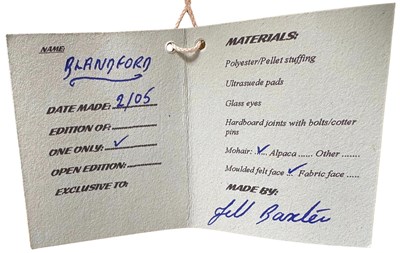 NAME:
BLANDFORD
DATE MADE: 2/05
EDITION OF:
ONE ONLY: ✓
OPEN EDITION:
EXCLUSIVE TO:
MATERIALS:
Polyester/Pellet stuffing
Ultrasuede pads
Glass eyes
Hardboard joints with bolts/cotter
pins
Mohair: ..✓.. Alpaca ...... Other ......
Moulded felt face ..✓ Fabric face .....
MADE BY:
Jill Baxter